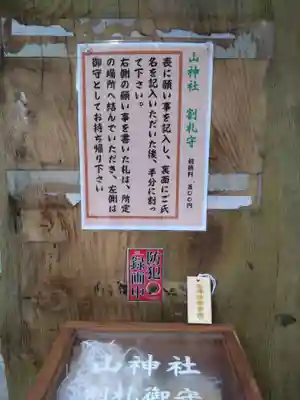 山神社　割札守
初穂料　五〇〇円
表に願い事を記入し、裏面にご氏
名を記入いただいた後、半分に割っ
て下さい。
右側の願い事を書いた札は、所定
の場所へ結んでいただき、左側は
御守としてお持ち帰り下さい
防犯
録画中
山神社
割札御守